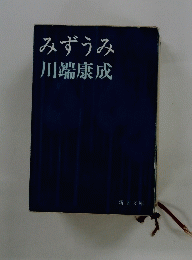 みずうみ
川端康成